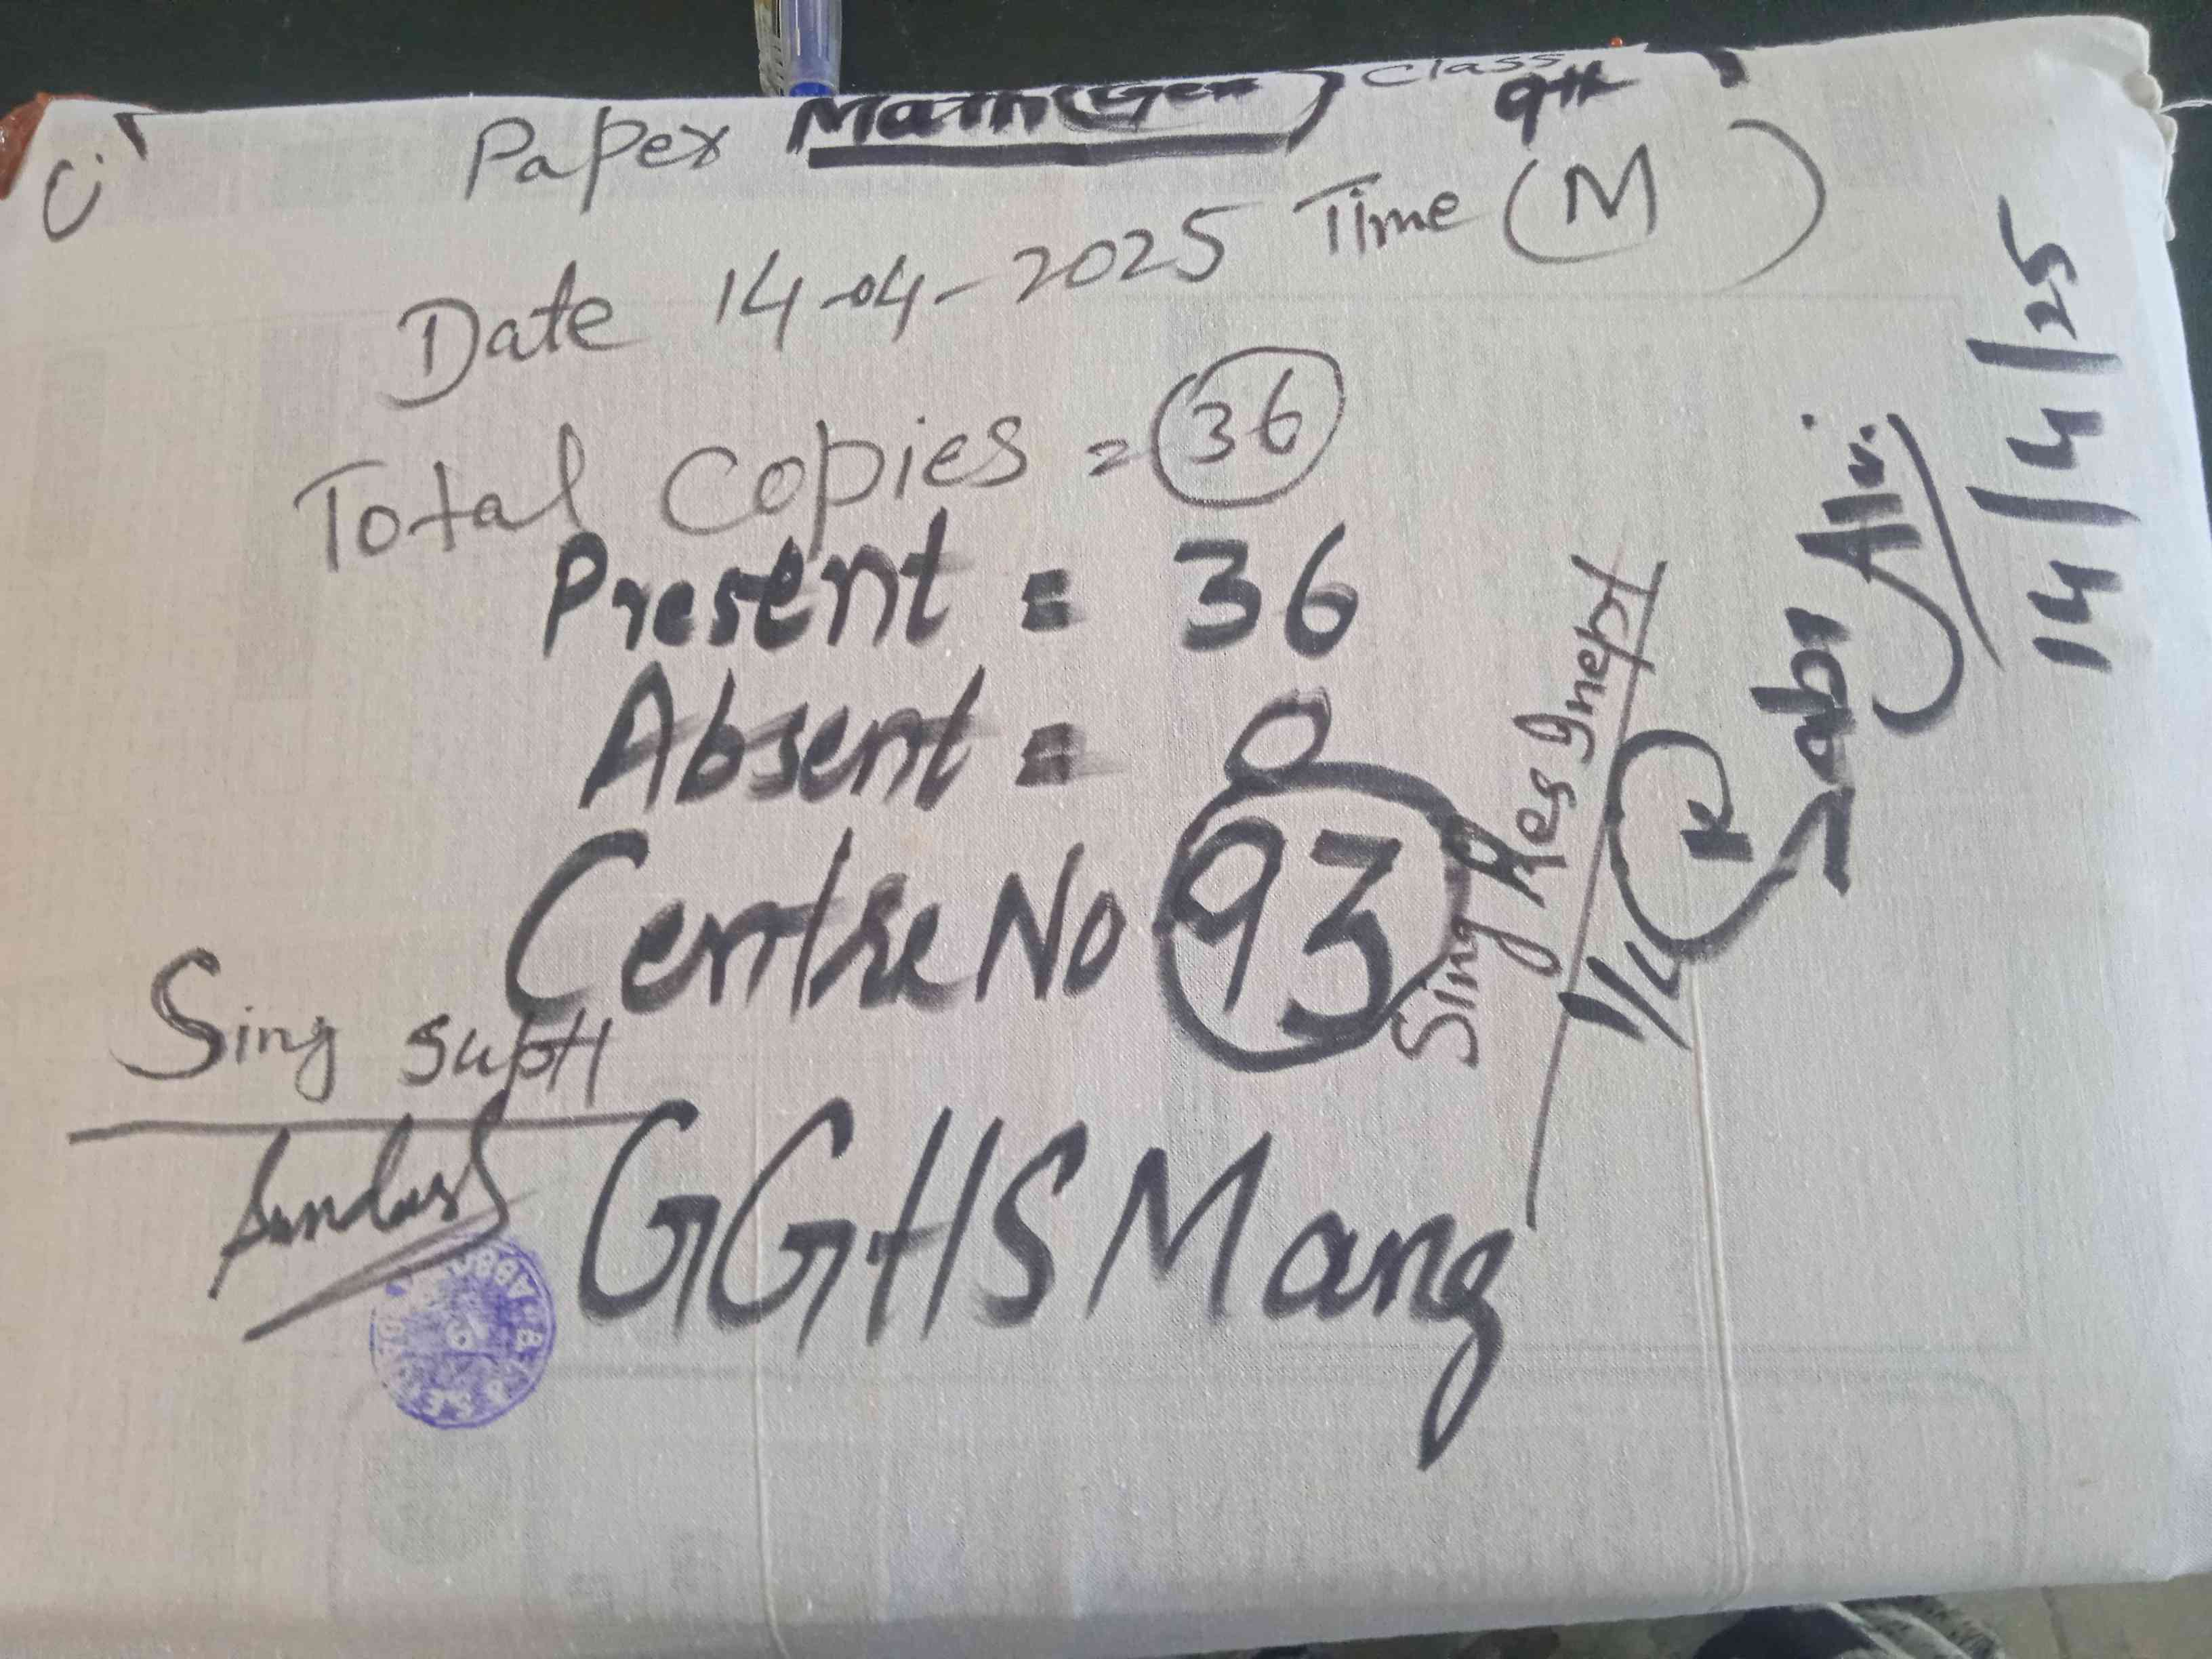 Paper Math (Gen) Class 9th
Date 14-04-2025 Time (M)
Total Copies = 36
Present = 36
Absent = 0
Centre No 93
Sing Supt
GGHS Mang
Sing Res Inept
Ali
14/4/25